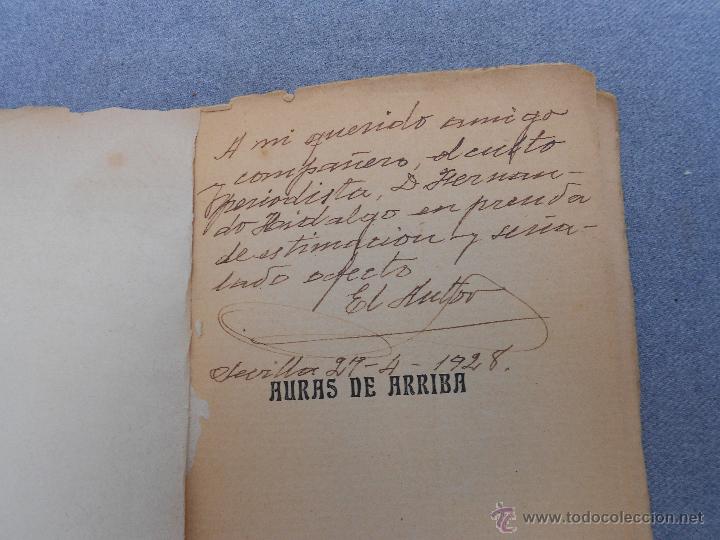 A mi querido amigo
y compañero, el culto
periodista, D. Hernan-
do Hidalgo en prenda
de estimacion y seña-
lado afecto
El Autor
Sevilla 27-4-1928.
AURAS DE ARRIBA
© todocoleccion.net